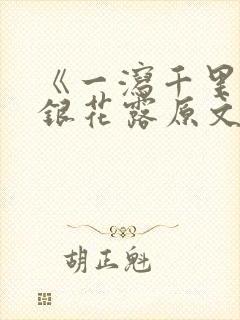 《一泻千里
银花露原文
胡正魁